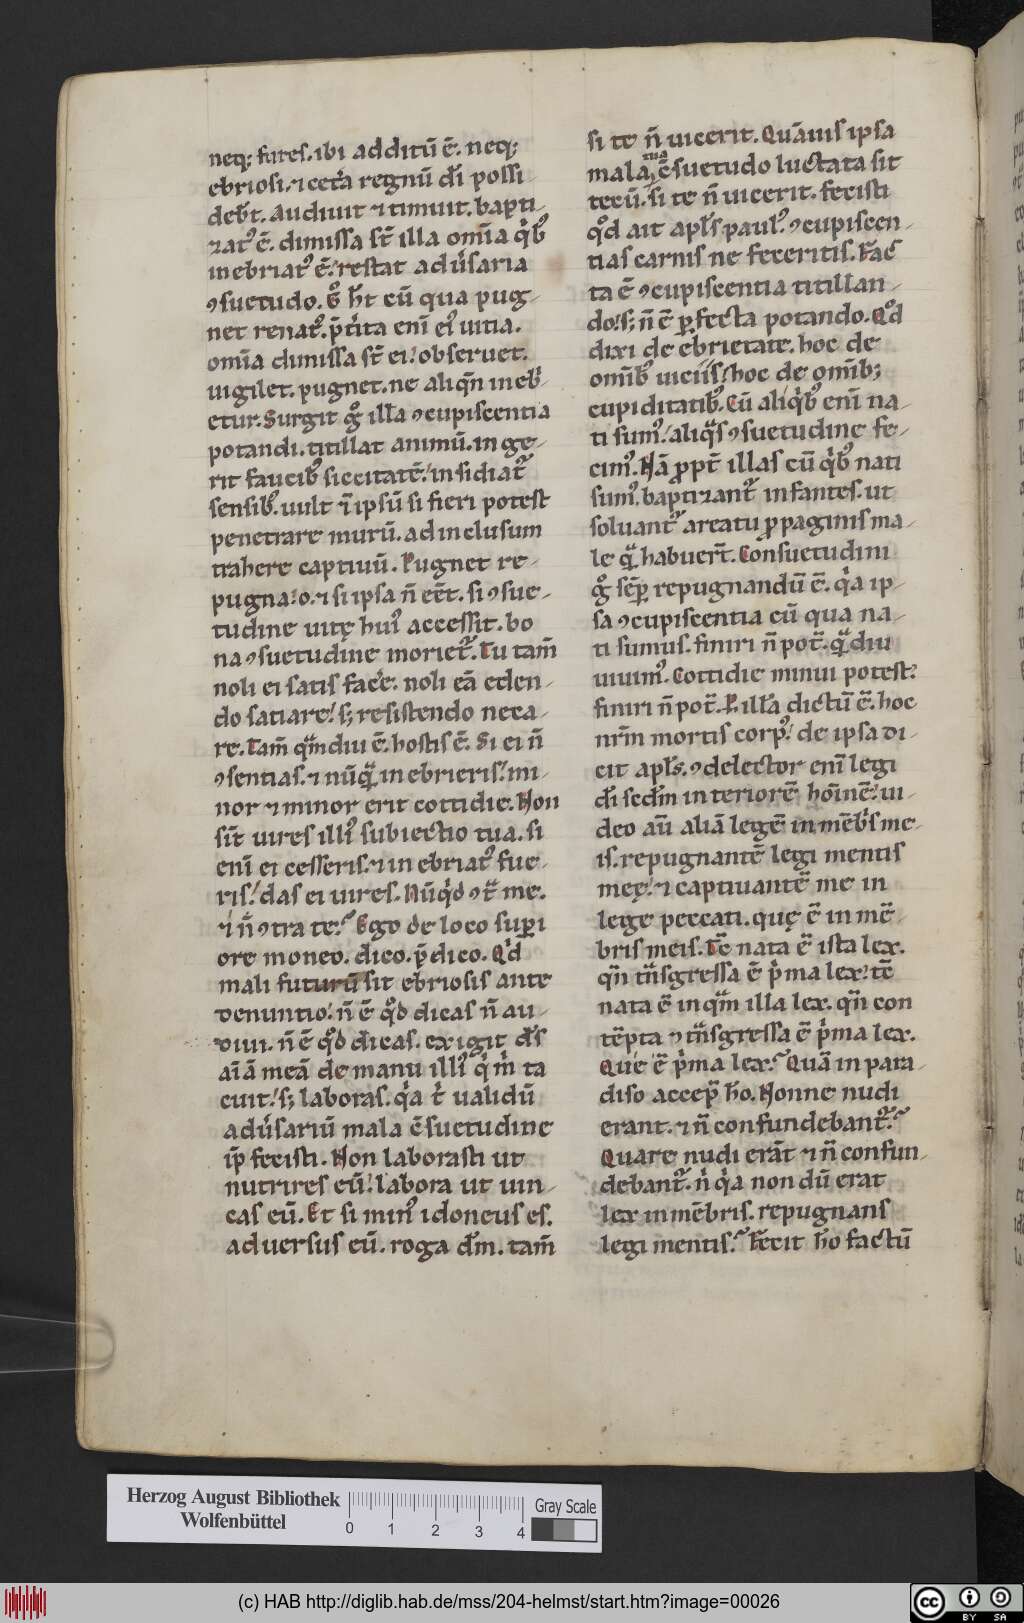 neq; fures. ibi additū ē. neq;
ebriosi. ⁊ cet̃a regnū dī possi-
deb̄t. Audiuit ⁊ timuit. bapti-
zatꝰ ē. dimissa st̄ illa om̄ia q̇bꝰ
inebriatꝰ ē. restat adũsaria
ꝯsuetudo. g̊ h̄t cū qua pug-
net renatꝰ. p̄t̃ita eni̅ eiꝰ uitia.
om̄ia dimissa st̄ ei. obseruet.
uigilet. pugnet. ne aliqn̄ ineb̃-
etur. Surgit g̊ illa ꝯcupiscentia
potandi. titillat animū. inge-
rit faucibꝰ siccitatē. insidiat᷑
sensibꝰ. uult ⁊ ipsū si fieri potest
penetrare murū. ad inclusum
trahere captiuū. Pugnet re-
pugna. o. ⁊ si ipsa n̄ eēt. si ꝯsue-
tudine uitę huiꝰ accessit. bo
na ꝯsuetudine moriet᷑. Tu tam̄
noli ei satis fac̃e. noli eā eden-
do satiare. s; resistendo neca-
re. Tam̄ qm̄diu ē. hostis ē. Si ei n̄
ꝯsentias. ⁊ nūq̄ inebrieris. mi-
nor ⁊ minor erit cottidie. Non
sīt uires illiꝰ subiectio tua. si
eni̅ ei cesseris. ⁊ inebriatꝰ fue-
ris. das ei uires. Nūq̇d ꝯt̃ me.
⁊ n̄ ꝯtra te. Ego de loco supi
ore moneo. dico. p̄dico. Qḋ
mali futurū sit ebriosis ante
denuntio. n̄ ē qd̊ dicas n̄ au-
diui. n̄ ē qd̊ dicas. exigit ds̄
aīā meā de manu illiꝰ q̇ m̃ ta
cuit. s; laboras. q̇a t̃ ualidū
adũsariū mala ꝯ̄suetudine
ip̄ fecisti. Non laborasti ut
nutrires eū. labora ut uin-
cas eū. Et si minꝰ idoneus es.
aduersus eū. roga dm̄. tam̄
si te n̄ uicerit. Quāuis ipsa
mala tua ꝯ̄suetudo luctata sit
tecū. si te n̄ uicerit. fecisti
qd̊ ait apl̄s paulꝰ. ꝯcupiscen-
tias carnis ne feceritis. Fac
ta ē ꝯcupiscentia titillan-
do. s; n̄ ē ꝑfecta potando. Qd̊
dixi de ebrietate. hoc de
omībꝰ uiciis. hoc de omīb;
cupiditatibꝰ. Cū aliq̇bꝰ eni̅ na-
ti sumꝰ. aliq̃s ꝯsuetudine fe-
cimꝰ. Nā ꝓpt̄ illas cū q̇bꝰ nati
sumꝰ. baptizant᷑ infantes. ut
soluant᷑ a reatu ꝓpaginis ma-
le q̃ habuer̄t. Consuetudini
g̊ sēꝑ repugnandū ē. q̇a ip-
sa ꝯcupiscentia cū qua na-
ti sumus. finiri n̄ pot̄. q̃diu
uiuimꝰ. Cottidie minui potest.
finiri n̄ pot̄. P̱ illā dictū ē. hoc
nr̄m mortis corpꝰ. de ipsa di-
cit apl̄s. ꝯdelector eni̅ legi
dī scdm̄ interiorē hoīnē. ui-
deo aū aliā legē in mēb̃s me-
is. repugnantē legi mentis
meę. ⁊ captiuantē me in
lege peccati. quę ē in mē-
bris meis. Tē nata ē ista lex.
qn̄ tñsgressa ē p̃ma lex. tē
nata ē inqm̄ illa lex. qn̄ con
tēpta ⁊ tñsgressa ē p̃ma lex.
Que ē p̃ma lex. Quā in para-
diso accep̄ ho̅. Nonne nudi
erant. ⁊ n̄ confundebant᷑.
Quare nudi erāt ⁊ n̄ confun-
debant᷑. n̄ q̇a nondū erat
lex in mēbris. repugnans
legi mentis. Fecit ho̅ factū
Herzog August Bibliothek
Wolfenbüttel
0 1 2 3 4
Gray Scale
(c) HAB http://diglib.hab.de/mss/204-helmst/start.htm?image=00026
cc BY SA